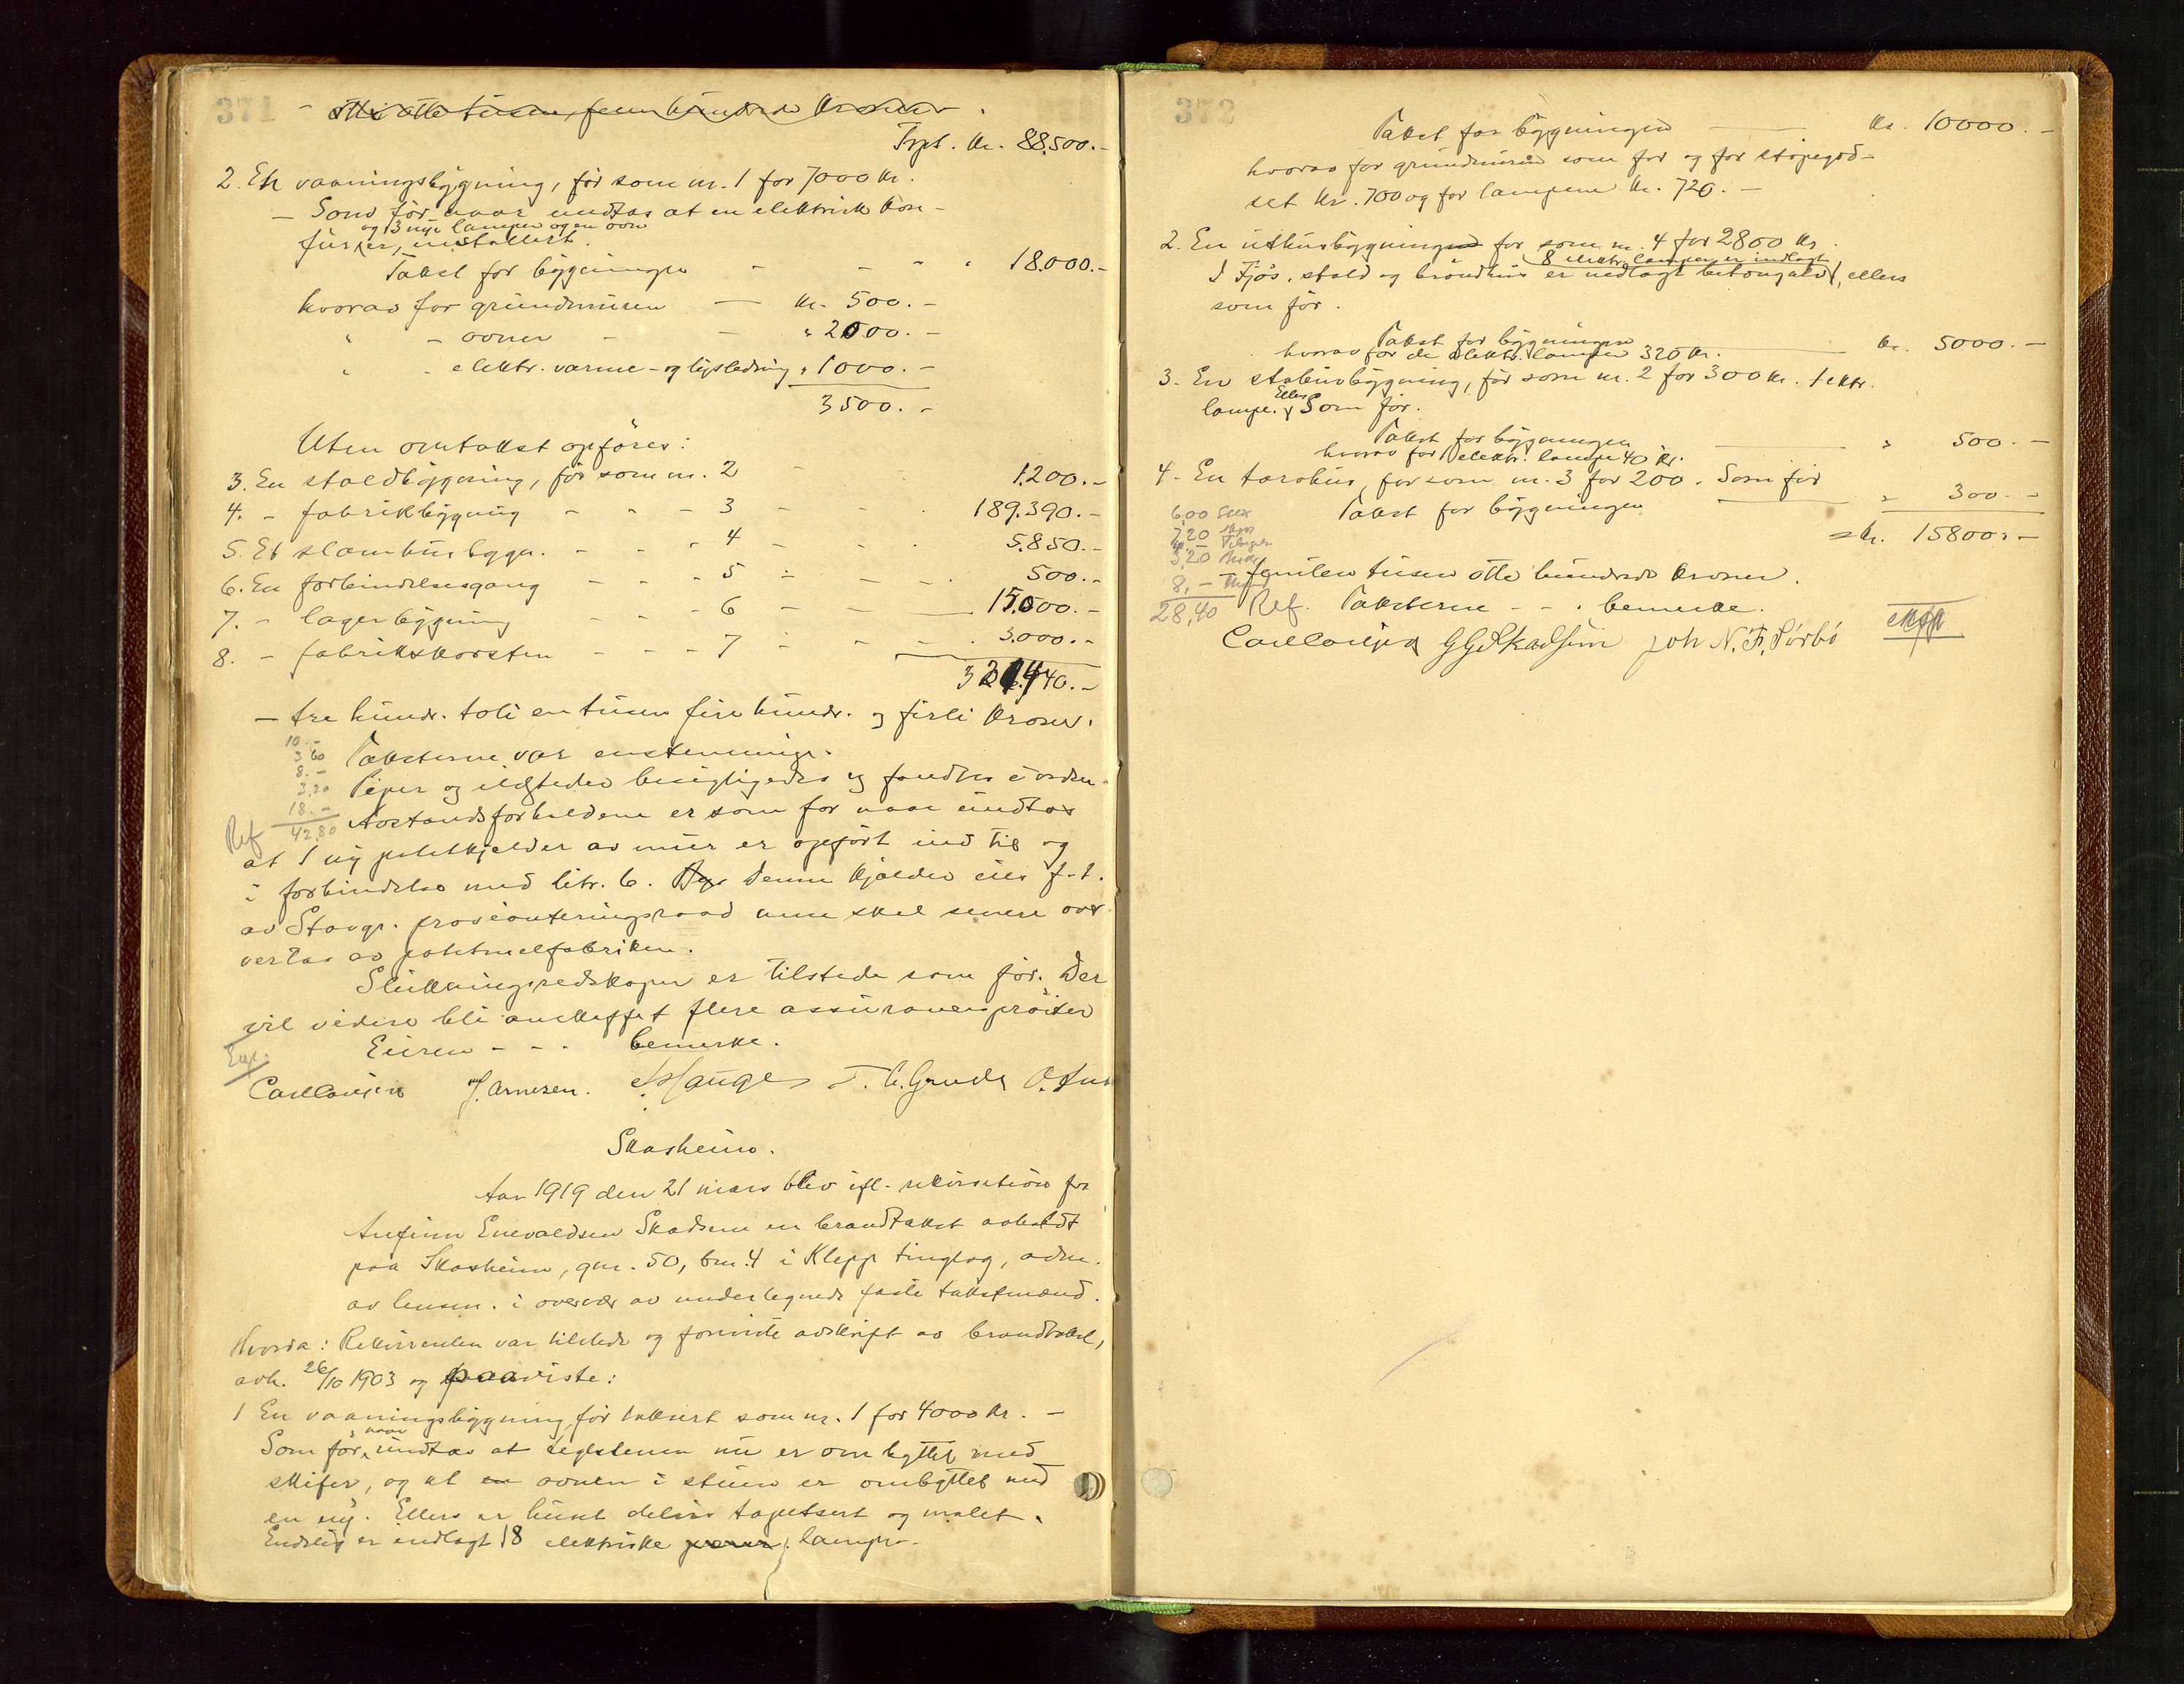 371
- otti otte tusen, fem hundrede kroner.
Trpt. Kr. 88.500.-
2. En vaaningsbygning, før som nr. 1 for 7000 kr.
- Som før naar undtas at en elektrisk kom-
og 13 nye lamper og en ovn
fur er, installert.
Takst for bygningen - - " " 18.000.-
hvorav for grundmuren - kr. 500.-
" - ovner - - " 2000.-
" - elektr. varme- og lysledning " 1000.-
3500.-
Uten omtakst opføres:
3. En staldbygning, før som nr. 2 - 1.200.-
4. - fabrikbygning - - - 3 - - - 189.390.-
5. Et slamhusbygn. - - - 4 - - - 5.850.-
6. En forbindelsesgang - - - 5 - - - 500.-
7. - lagerbygning - - - 6 - - 15.000.-
8. - fabrikskorsten - - - 7 - - - 3.000.-
321.440.-
- tre hundr. toti en tusen fire hundr. og firti kroner.
10.-
3,60 Taksterne var enstemmige.
8.-
3,20 Piper og ildsteder besigtigedes og fandtes i orden.
18.-
Ref 42,80 Avstandsforholdene er som før naar undtas
at 1 ny potetkjelder av mur er opført ind til og
i forbindelse med litr. 6. Denne kjelder eies f.t.
av Stavgr. provianteringsraad men skal senere over
vertas av potetmelfabriken.
Slukningsredskaper er tilstede som før. Der
vil videre bli anskaffet flere assurancesprøiter
Exp. Eieren - - - bemerke.
J. Arnesen. Hauge T. C. Grude
Skasheim.
Aar 1919 den 21 mars blev ifl. rekvisition fra
Anfinn Enevaldsen Skadsem en brandtakst avholdt
paa Skasheim, gnr. 50, bnr. 4 i Klepp tinglag, adm.
av lensm. i overvær av undertegnede faste takstmænd.
Hvorda: Rekvirenten var tilstede og foreviste avskrift av brandtakst,
avh. 26/10 1903 og paaviste:
1 En vaaningsbygning, før takert som nr. 1 for 4000 kr. -
naar
Som før, undtas at teglstenen nu er ombyttet med
skifer, og at en ovnen i stuen er ombyttet med
en ny. Ellers er huset delvis tapetsert og malet.
Endelig er indlagt 18 elektriske lamper.
372
Takst for bygningen - kr. 10000.-
hvorav for grundmuren som før og for støpegod-
set kr. 700 og for lampene kr. 720.-
2. En uthusbygning før som nr. 4 for 2800 kr.
8 elektr. lamper er indlagt
I Fjøs, stald og brøndhus er nedlagt betongulv, ellers
som før.
Takst for bygningen - kr. 5000.-
hvorav for de elektr. lamper 320 kr.
3. En stabursbygning, før som nr. 2 for 300 kr. 1 elktr.
Ellers
lampe. Som før.
Takst for bygningen - " 500.-
hvorav for 1 elektr. lampe 40 kr.
4. En tørvhus, før som nr. 3 for 200. Som før
Takst for bygningen - " 300.-
6,00
7,20
3,20
8,-
28,40
= Kr. 15800.-
- femten tusen otte hundrede kroner.
Ref. Taksterne - - - bemerke.
G G Skadsem Joh N. F. Sørbø